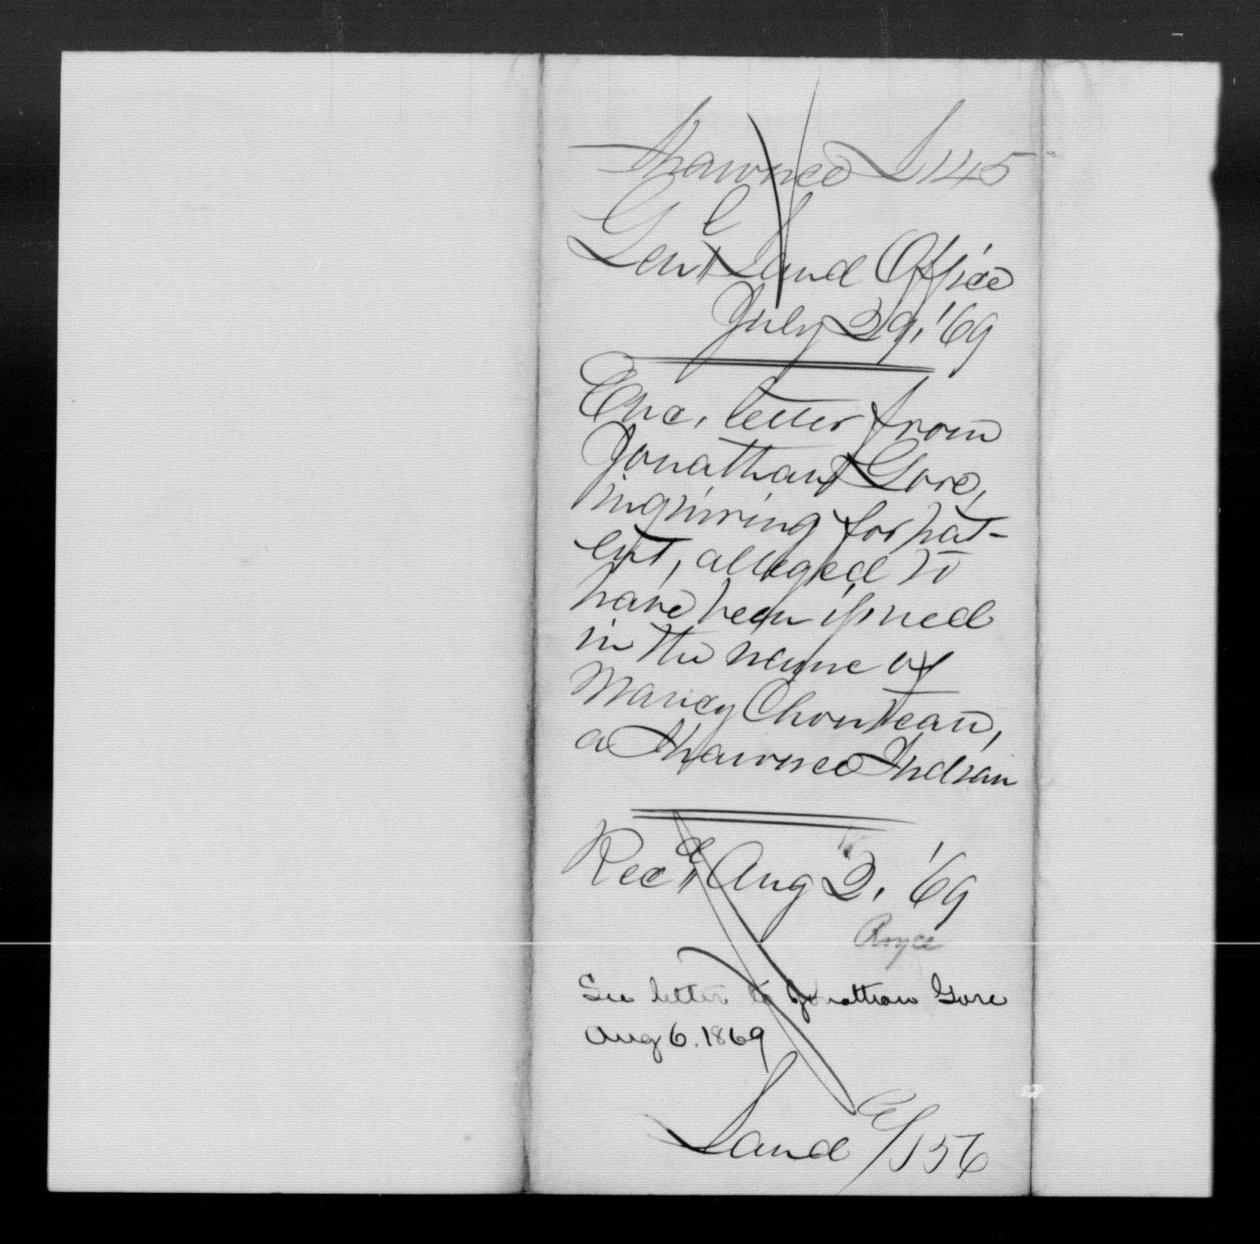 Shawnee L 145
Genl Land Office
July 29, '69
Enc. letter from
Jonathan Gore,
inquiring for pat-
ent, alleged to
have been issued
in the name of
Nancy Chouteau,
a Shawnee Indian
Recd Aug 2, '69
Royce
See letter to Jonathan Gore
Aug 6. 1869
Land